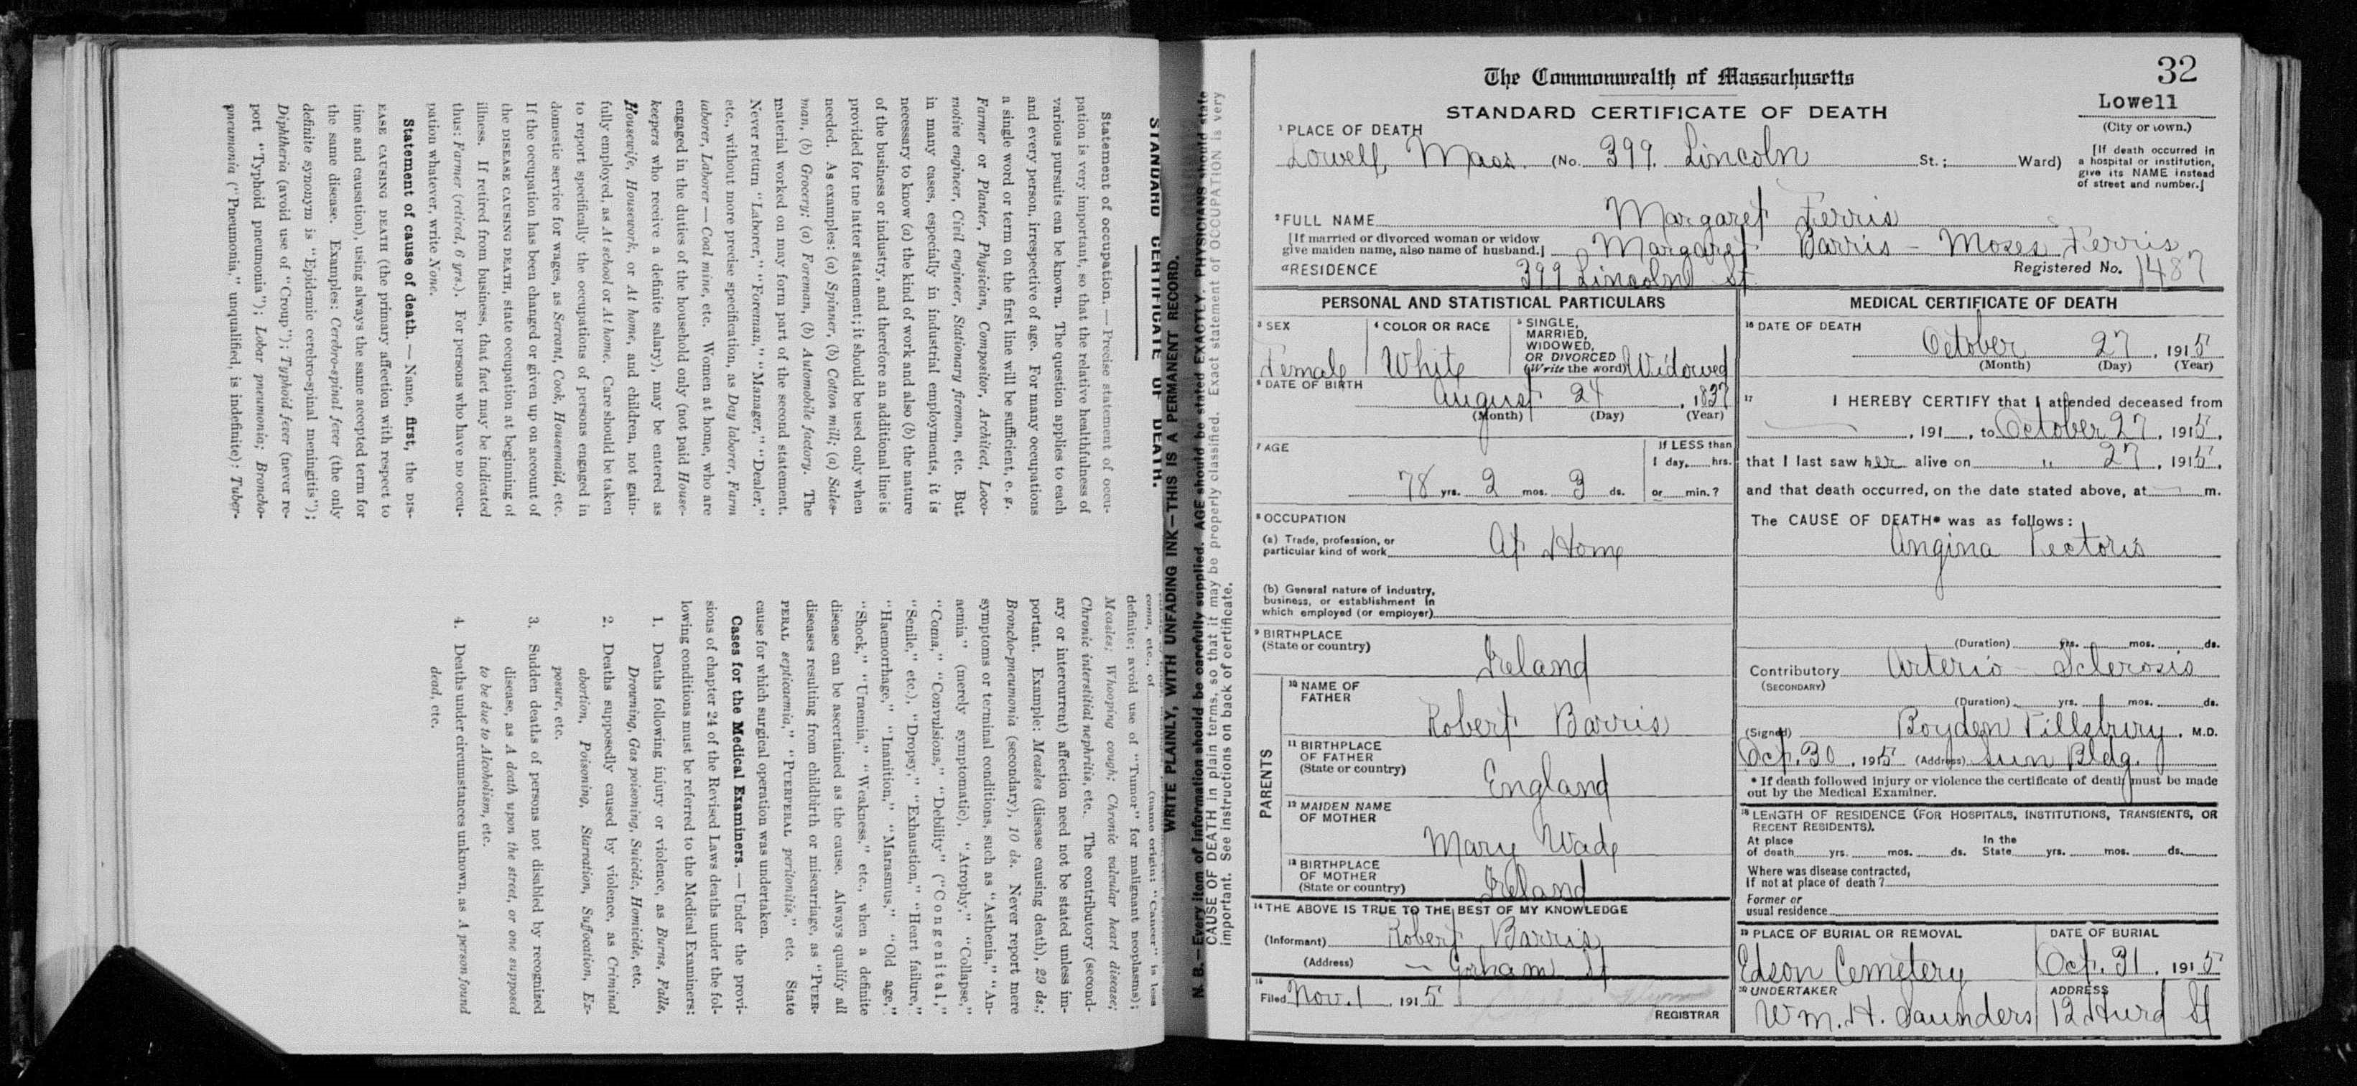 Statement of occupation. — Precise statement of occu-
pation is very important, so that the relative healthfulness of
various pursuits can be known. The question applies to each
and every person, irrespective of age. For many occupations
a single word or term on the first line will be sufficient, e. g.,
Farmer or Planter, Physician, Compositor, Architect, Loco-
motive engineer, Civil engineer, Stationary fireman, etc. But
in many cases, especially in industrial employments, it is
necessary to know (a) the kind of work and also (b) the nature
of the business or industry, and therefore an additional line is
provided for the latter statement; it should be used only when
needed. As examples: (a) Spinner, (b) Cotton mill; (a) Sales-
man, (b) Grocery; (a) Foreman, (b) Automobile factory. The
material worked on may form part of the second statement.
Never return "Laborer," "Foreman," "Manager," "Dealer,"
etc., without more precise specification, as Day laborer, Farm
laborer, Laborer — Coal mine, etc. Women at home, who are
engaged in the duties of the household only (not paid House-
keepers who receive a definite salary), may be entered as
Housewife, Housework, or At home, and children, not gain-
fully employed, as At school or At home. Care should be taken
to report specifically the occupations of persons engaged in
domestic service for wages, as Servant, Cook, Housemaid, etc.
If the occupation has been changed or given up on account of
the DISEASE CAUSING DEATH, state occupation at beginning of
illness. If retired from business, that fact may be indicated
thus: Farmer (retired, 6 yrs.). For persons who have no occu-
pation whatever, write None.
Statement of cause of death. — Name, first, the DIS-
EASE CAUSING DEATH (the primary affection with respect to
time and causation), using always the same accepted term for
the same disease. Examples: Cerebro-spinal fever (the only
definite synonym is "Epidemic cerebro-spinal meningitis");
Diphtheria (avoid use of "Croup"); Typhoid fever (never re-
port "Typhoid pneumonia"); Lobar pneumonia; Broncho-
pneumonia ("Pneumonia," unqualified, is indefinite); Tuber-
STANDARD CERTIFICATE OF DEATH.
coma, etc., of (name origin; "Cancer" is less
definite; avoid use of "Tumor" for malignant neoplasms);
Measles; Whooping cough; Chronic valvular heart disease;
Chronic interstitial nephritis, etc. The contributory (second-
ary or intercurrent) affection need not be stated unless im-
portant. Example: Measles (disease causing death), 29 ds.;
Broncho-pneumonia (secondary), 10 ds. Never report mere
symptoms or terminal conditions, such as "Asthenia," "An-
aemia" (merely symptomatic), "Atrophy," "Collapse,"
"Coma," "Convulsions," "Debility" ("Congenital,"
"Senile," etc.), "Dropsy," "Exhaustion," "Heart failure,"
"Haemorrhage," "Inanition," "Marasmus," "Old age,"
"Shock," "Uraemia," "Weakness," etc., when a definite
disease can be ascertained as the cause. Always qualify all
diseases resulting from childbirth or miscarriage, as "PUER-
PERAL septicaemia," "PUERPERAL peritonitis," etc. State
cause for which surgical operation was undertaken.
Cases for the Medical Examiners. — Under the provi-
sions of chapter 24 of the Revised Laws deaths under the fol-
lowing conditions must be referred to the Medical Examiners:
1. Deaths following injury or violence, as Burns, Falls,
Drowning, Gas poisoning, Suicide, Homicide, etc.
2. Deaths supposedly caused by violence, as Criminal
abortion, Poisoning, Starvation, Suffocation, Ex-
posure, etc.
3. Sudden deaths of persons not disabled by recognized
disease, as A death upon the street, or one supposed
to be due to Alcoholism, etc.
4. Deaths under circumstances unknown, as A person found
dead, etc.
WRITE PLAINLY, WITH UNFADING INK—THIS IS A PERMANENT RECORD.
N. B.—Every item of information should be carefully supplied. AGE should be stated EXACTLY. PHYSICIANS should state
CAUSE OF DEATH in plain terms, so that it may be properly classified. Exact statement of OCCUPATION is very
important. See instructions on back of certificate.
32
The Commonwealth of Massachusetts
STANDARD CERTIFICATE OF DEATH
Lowell
(City or town.)
1 PLACE OF DEATH
Lowell, Mass. (No. 399 Lincoln St.; Ward)
[If death occurred in
a hospital or institution,
give its NAME instead
of street and number.]
2 FULL NAME Margaret Ferris
[If married or divorced woman or widow
give maiden name, also name of husband.] Margaret Barris - Moses Ferris
a RESIDENCE 399 Lincoln St. Registered No. 1487
PERSONAL AND STATISTICAL PARTICULARS
3 SEX
Female
4 COLOR OR RACE
White
5 SINGLE,
MARRIED,
WIDOWED,
OR DIVORCED
(Write the word) Widowed
6 DATE OF BIRTH
August 24, 1837
(Month) (Day) (Year)
7 AGE
78 yrs. 2 mos. 3 ds.
If LESS than
1 day, hrs.
or min.?
8 OCCUPATION
(a) Trade, profession, or
particular kind of work At Home
(b) General nature of industry,
business, or establishment in
which employed (or employer)
9 BIRTHPLACE
(State or country) Ireland
PARENTS
10 NAME OF
FATHER Robert Barris
11 BIRTHPLACE
OF FATHER
(State or country) England
12 MAIDEN NAME
OF MOTHER
Mary Wade
13 BIRTHPLACE
OF MOTHER
(State or country) Ireland
14 THE ABOVE IS TRUE TO THE BEST OF MY KNOWLEDGE
(Informant) Robert Barris
(Address) — Gorham St
15
Filed Nov. 1, 1915
REGISTRAR
MEDICAL CERTIFICATE OF DEATH
16 DATE OF DEATH
October 27, 1915
(Month) (Day) (Year)
17 I HEREBY CERTIFY that I attended deceased from
, 191 , to October 27, 1915,
that I last saw her alive on " 27, 1915,
and that death occurred, on the date stated above, at m.
The CAUSE OF DEATH* was as follows:
Angina Pectoris
(Duration) yrs. mos. ds.
Contributory Arterio Sclerosis
(SECONDARY)
(Duration) yrs. mos. ds.
(Signed) Boyden Pillsbury, M.D.
Oct. 30, 1915 (Address) Sun Bldg.
* If death followed injury or violence the certificate of death must be made
out by the Medical Examiner.
18 LENGTH OF RESIDENCE (FOR HOSPITALS, INSTITUTIONS, TRANSIENTS, OR
RECENT RESIDENTS).
At place In the
of death yrs. mos. ds. State yrs. mos. ds.
Where was disease contracted,
If not at place of death?
Former or
usual residence
19 PLACE OF BURIAL OR REMOVAL
Edson Cemetery
DATE OF BURIAL
Oct. 31, 1915
20 UNDERTAKER
Wm. H. Saunders
ADDRESS
12 Hurd St